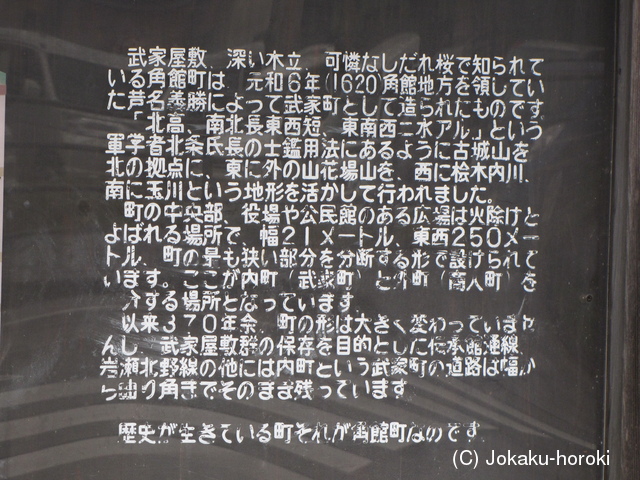 武家屋敷、深い木立、可憐なしだれ桜で知られて
いる角館町は、元和6年(1620)角館地方を領してい
た芦名義勝によって武家町として造られたものです
「北高、南北長東西短、東南西ニ水アル」という
軍学者北条氏長の士鑑用法にあるように古城山を
北の拠点に、東に外の山花場山を、西に桧木内川、
南に玉川という地形を活かして行われました。
町の中央部、役場や公民館のある広場は火除けと
よばれる場所で、幅21メートル、東西250メー
トル、町の最も狭い部分を分断する形で設けられて
います。ここが内町(武家町)と外町(商人町)を
する場所となっています。
以来370年余、町の形は大きく変わっていませ
んし、武家屋敷群の保存を目的とした伝承館通線、
岩瀬北野線の他には内町という武家町の道路は幅か
ら曲り角までそのまま残っています
歴史が生きている町それが角館町なのです
(C) Jokaku-horoki